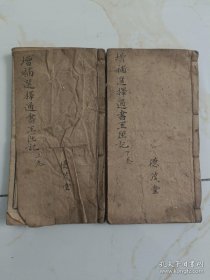 增補選擇通書玉匣記上卷
德茂堂
增補選擇通書玉匣記下卷
德茂堂